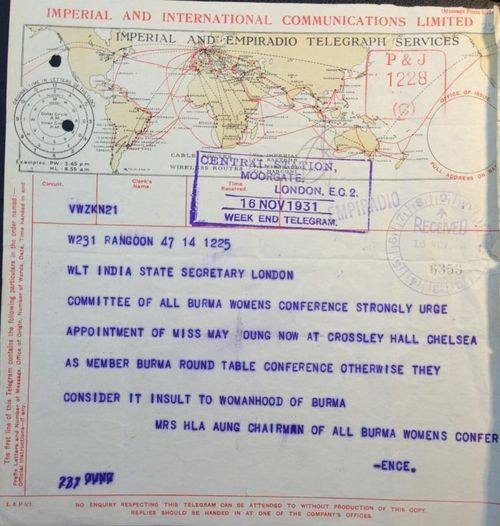 IMPERIAL AND INTERNATIONAL COMMUNICATIONS LIMITED
IMPERIAL AND EMPIRADIO TELEGRAPH SERVICES
P & J
1228
Examples. PW: 3.45 p.m
HL: 8.55 a.m
OFFICE OF ISSUE
FULL ADDRESS
CENTRAL STATION,
MOORGATE,
LONDON, E.C.2.
16 NOV 1931
WEEK END TELEGRAM.
Circuit.
Clerk's Name.
Time Received.
EMPIRADIO
RECEIVED
6353
VWZKN21
W231 RANGOON 47 14 1225
WLT INDIA STATE SECRETARY LONDON
COMMITTEE OF ALL BURMA WOMENS CONFERENCE STRONGLY URGE
APPOINTMENT OF MISS MAY OUNG NOW AT CROSSLEY HALL CHELSEA
AS MEMBER BURMA ROUND TABLE CONFERENCE OTHERWISE THEY
CONSIDER IT INSULT TO WOMANHOOD OF BURMA
MRS HLA AUNG CHAIRMAN OF ALL BURMA WOMENS CONFER
-ENCE.
The first line of this Telegram contains the following particulars in the order named:
Prefix Letters and Number of Message, Office of Origin, Number of Words, Date, Time handed in and
Official Instructions—if any.
NO ENQUIRY RESPECTING THIS TELEGRAM CAN BE ATTENDED TO WITHOUT PRODUCTION OF THIS COPY.
REPLIES SHOULD BE HANDED IN AT ONE OF THE COMPANY'S OFFICES.